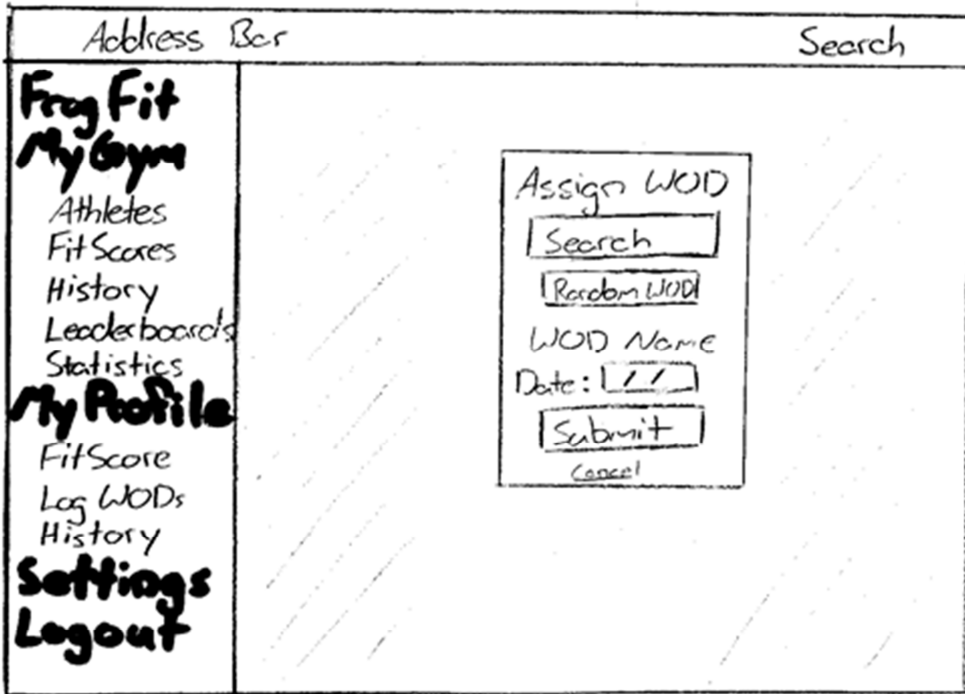 Address Bar
Search
Frog Fit
My Gym
Athletes
FitScores
History
Leaderboards
Statistics
My Profile
FitScore
Log WODs
History
Settings
Logout
Assign WOD
Search
Random WOD
WOD Name
Date: / /
Submit
Cancel